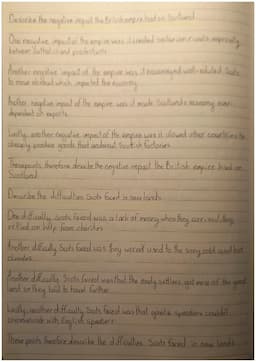 Describe the negative impact the British empire had on Scotland.
One negative impact of the empire was it created sectarianism and inequality
between Catholics and protestants
Another negative impact of the empire was it encouraged well-educated Scots
to move abroad which impacted the economy.
Another negative impact of the empire was it made Scotland's economy over
dependent on exports.
Lastly, another negative impact of the empire was it allowed other countries to
cheaply produce goods that undercut Scottish factories
These points therefore describe the negative impact the British empire had on
Scotland.
Describe the difficulties Scots faced in new lands.
One difficulty Scots faced was a lack of money when they arrived, they
relied on help from charities
Another difficulty Scots faced was they weren't used to the
climates.
Another difficulty Scots faced was that the early settlers got most of the good
land so they had to travel further.
Lastly, another difficulty Scots faced was that gaelic speakers couldn't
communicate with English speakers.
These points therefore describe the difficulties Scots faced in new lands.